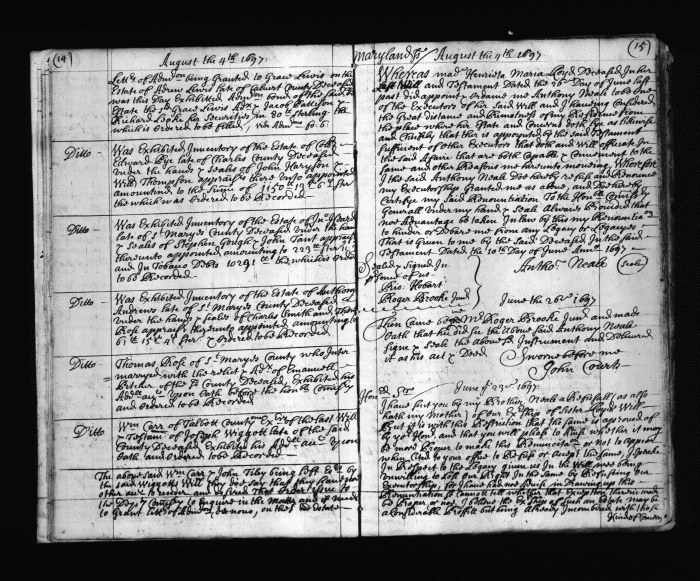 (14)
August the 4th 1697
Letts of Admon being Granted to Grace Lewis on the
Estate of
late of Calvert County Deceased
was this Day Exhibited Admon bond of the said
Estate the sd Grace Lewis Admx Jacob
Richard
for Securities in 80 lb Sterling the
which is ordered to be filed, vide Admon fo. 6.
Ditto Was Exhibited Inventory of the Estate of Coll
Edward Pye late of Charles County Deceased
Under the hands & Seales of John
Will Thompson apprais thereunto appointed
amounting to the Sume of 1150 lb 13 s 6 d Ster
the which was Ordered to be Recorded
Ditto Was Exhibited Inventory of the Estate of Jn
late of St Maryes County Deceased Under the hands
& Seales of Stephen Gough & John Tant appraisrs
thereunto appointed amounting to
And in Tobacco Debts 10291 lb the which is Ordered
to be Recorded
Ditto Was Exhibited Inventory of the Estate of Anthony
Andrews late of St Maryes County Deceased
Under the hands & Seales of Charles Smith and Thomas
Rose appraisrs thereunto appointed amounting to
61 lb 15 s 4 d Ster & Ordered to be Recorded
Ditto Thomas Rose of St Maryes County who Inter
marryed with the relict & Admx of Emanuell
of the sd County Deceased, Exhibited his
Addl acct upon Oath before the honble Comissry
and ordered to be Recorded
Ditto Wm Carr of Talbott County Exr of the last Will
& Testamt of Joseph Wiggott late of the said
County Deceased Exhibited his Addl acct upon
Oath and Ordered to be Recorded
The above said Wm Carr & John Tiley being left Exrs by
the said Wiggotts Will they doe say that they have noe
other acct to render, and desired that Order Issue to
the Depty Comissry to Enquire in the Matter and if need
to Grant letts of Admon de novo, on the sd Estate
(15)
Maryland ss August the 4th 1697
Whereas mad Henrietta Maria Lloyd Deceased In her
Last Will and Testament Dated the day of June last
past Did appoint & Ordaine Anthony Neale to be one
of the Executors of her Said Will and I haveing Considered
the Great distance and Remoteness of my Residence from
the place where her Estate and Concerns doth lye, as likewise
and Chiefly that there is appointed by the said Testament
sufficient of other Executors that doth and will officiate In
the Said Affaire that are both Capable & Convenient to the
Same and other Reasons me hereunto moveing Wherefore
I the said Anthony Neale Doe hereby refuse and Renounce
my Executorship Granted me as above, and Doe hereby
Certifye my said Renountiation To the Honble Comissry
Generall Under my hand & Seale Always Provided that
noe Advantage be taken In law by this my Renuntiaon
to hinder or Debarr me from any Legacy or Legacyes
That is Given to me by the Said Deceased In the said
Testament Dated the 10th day of June Anno 1697
Sealed & signed In
presence of us
Anthо: Neale (Seale)
Rio: Hobart
Roger Brooke Junr
June the 26th 1697
Then Came before me Mr Roger Brooke Junr and made
Oath that he did see the above said Anthony Neale
Signe & Seale the above sd Instrument and Delivered
it as his act & Deed
Sworne before me
John Courts
Hond Sr June ye 23d 1697
I have sent you by my Brother Neale a Refusall (as alsо
hath my Mother) of our Exrships of Sister Lloyds Will
But it is with this Restriction that the same be approved of
by yor Honr, and that you will please to
whether it may
be most proper to make such Renuncitaon or not to appear
when Cited to your Office to Refuse or accept the same, I
In Respect to the Legacy given us In the Will was being
unwilling to lose our Right In the same by Refusing our
Executorships, for I have had noe Advice in Drawing up this
Renuntiation &
a Considerable Profitt but being Already Incumbred with those
Kinde of Concerns